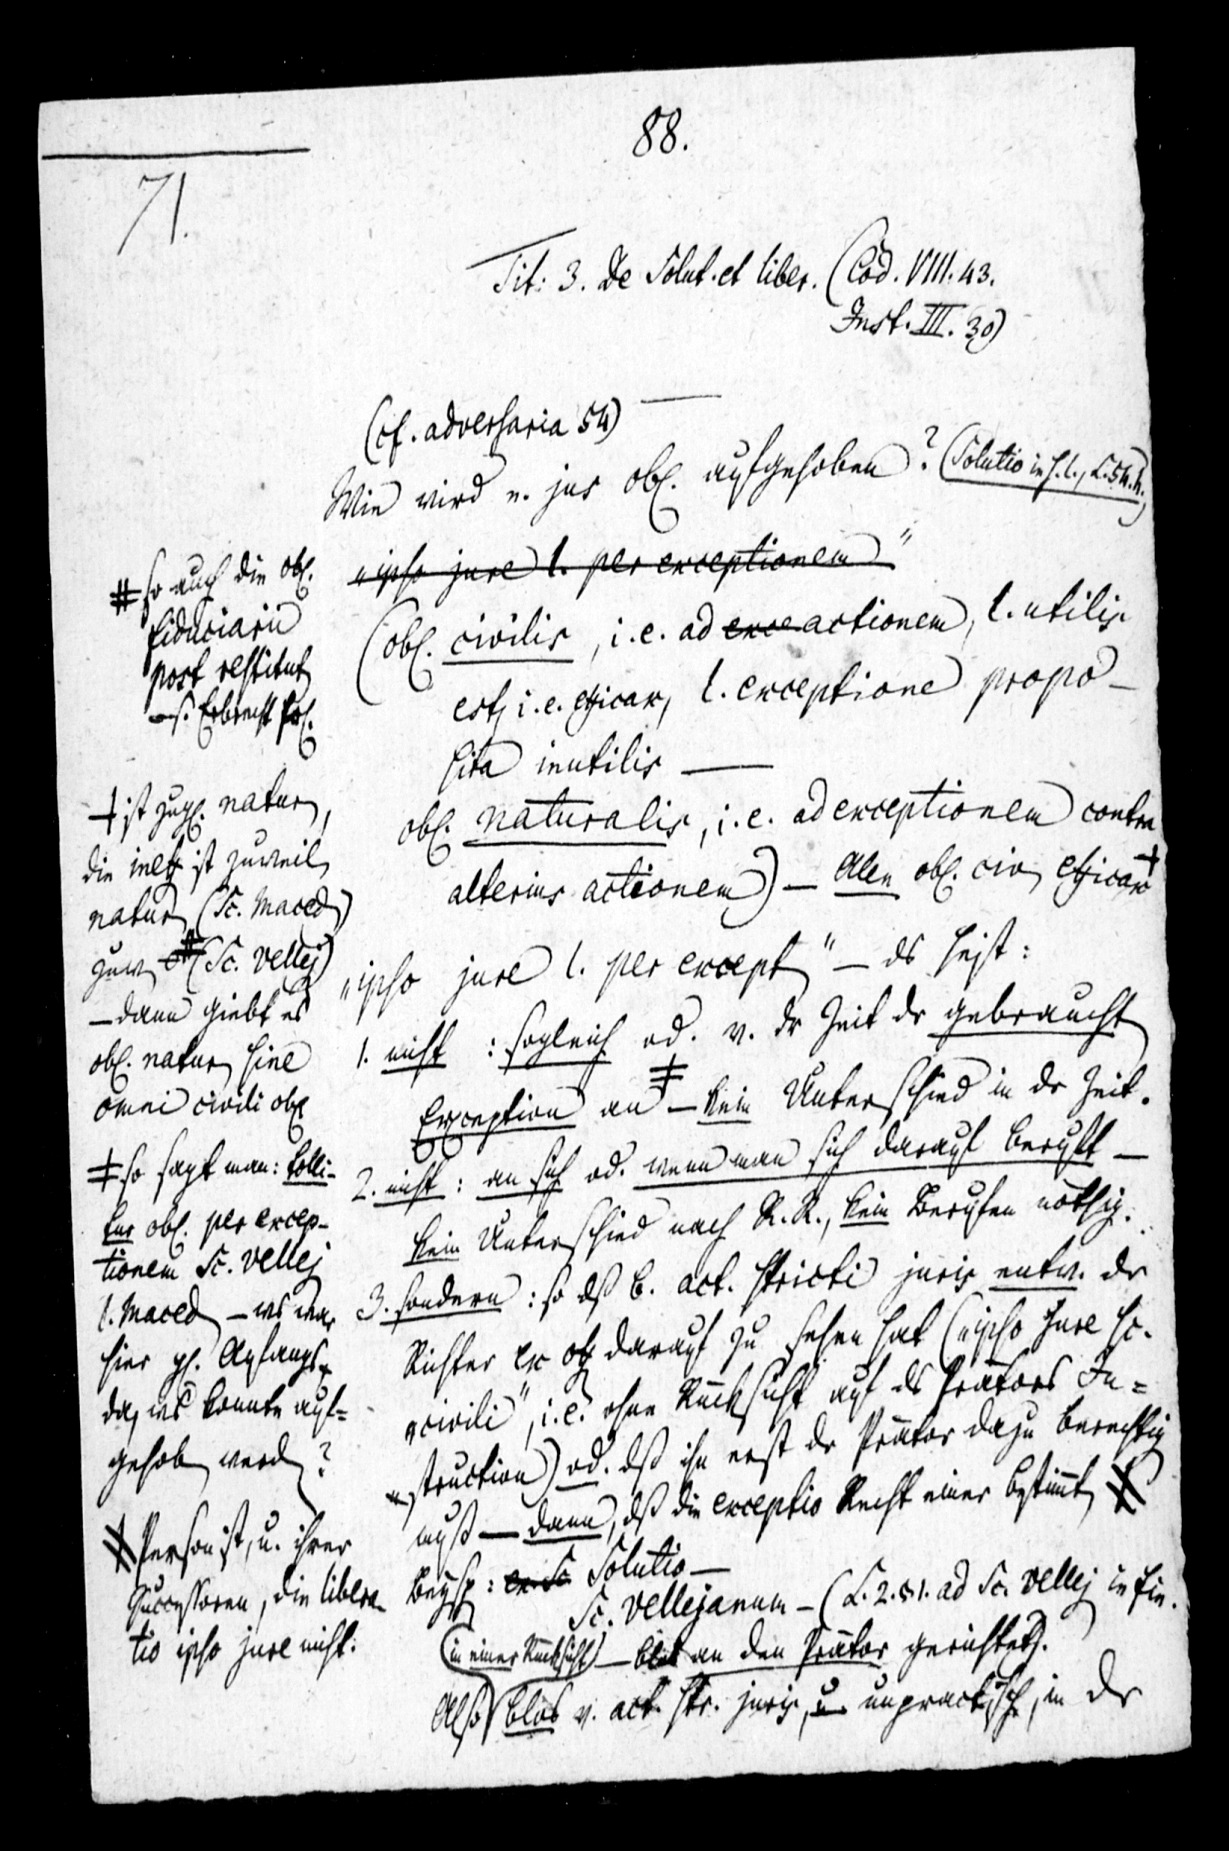 88.
71.
Tit: 3. De Solut. et liber. (Cod. VIII. 43.
Inst. III. 30)
(cf. adversaria 54)
Wie wird e. jus obl. aufgehoben? (Solutio in h. l., L. 54. h.)
„ipso jure l. per exceptionem“
(obl. civilis, i. e. ad exce actionem, l. utilis
est, i. e. efficax, l. exceptione propo-
sita inutilis —
obl. naturalis, i. e. ad exceptionem contra
alterius actionem) — Alen obl. civ. efficax +
„ipso jure l. per except“ — ds heist:
1. nicht: sogleich od. v. dr Zeit dr gebraucht
Exception an ‡ — kein Unterschied in dr Zeit.
2. nicht: an sich od. wenn man sich darauf beruft —
kein Unterschied nach R. R., kein Berufen nöthig.
3. sondern: so dß b. act. stricti juris entw. dr
Richter ex off darauf zu sehen hat („ipso jure sc.
civili“, i. e. ohne Rücksicht auf ds Prätors In=
struction) od. dß ihn erst dr Prätor dazu berechtig
muß — dann, dß die exceptio Recht einer bestimt
Beysp: Solutio —
Sc. Vellejanum — (L. 2. §1. ad Sc. Vellej in fin.
(in einer Rücksicht) — an den Prätor gerichtet).
Also blos v. act. str. juris, u. unpractisch, in dr
# so auch die obl.
fiduciarii
post restitut
s. Erbrecht
+ ist zugl. natur,
die ineff ist zuweil
natur (Sc. Maced)
zuw (Sc. Vellej)
— dann giebt es
obl. natur sine
omni civili obl
‡ so sagt man: tolli-
tur obl. per excep-
tionem Sc. Vellej
l. Maced — ws war
hier gl. Anfangs
da, ws konnte auf=
gehob werd?
Person ist, u. ihrer
Successoren, die libera-
tio ipso jure nicht.